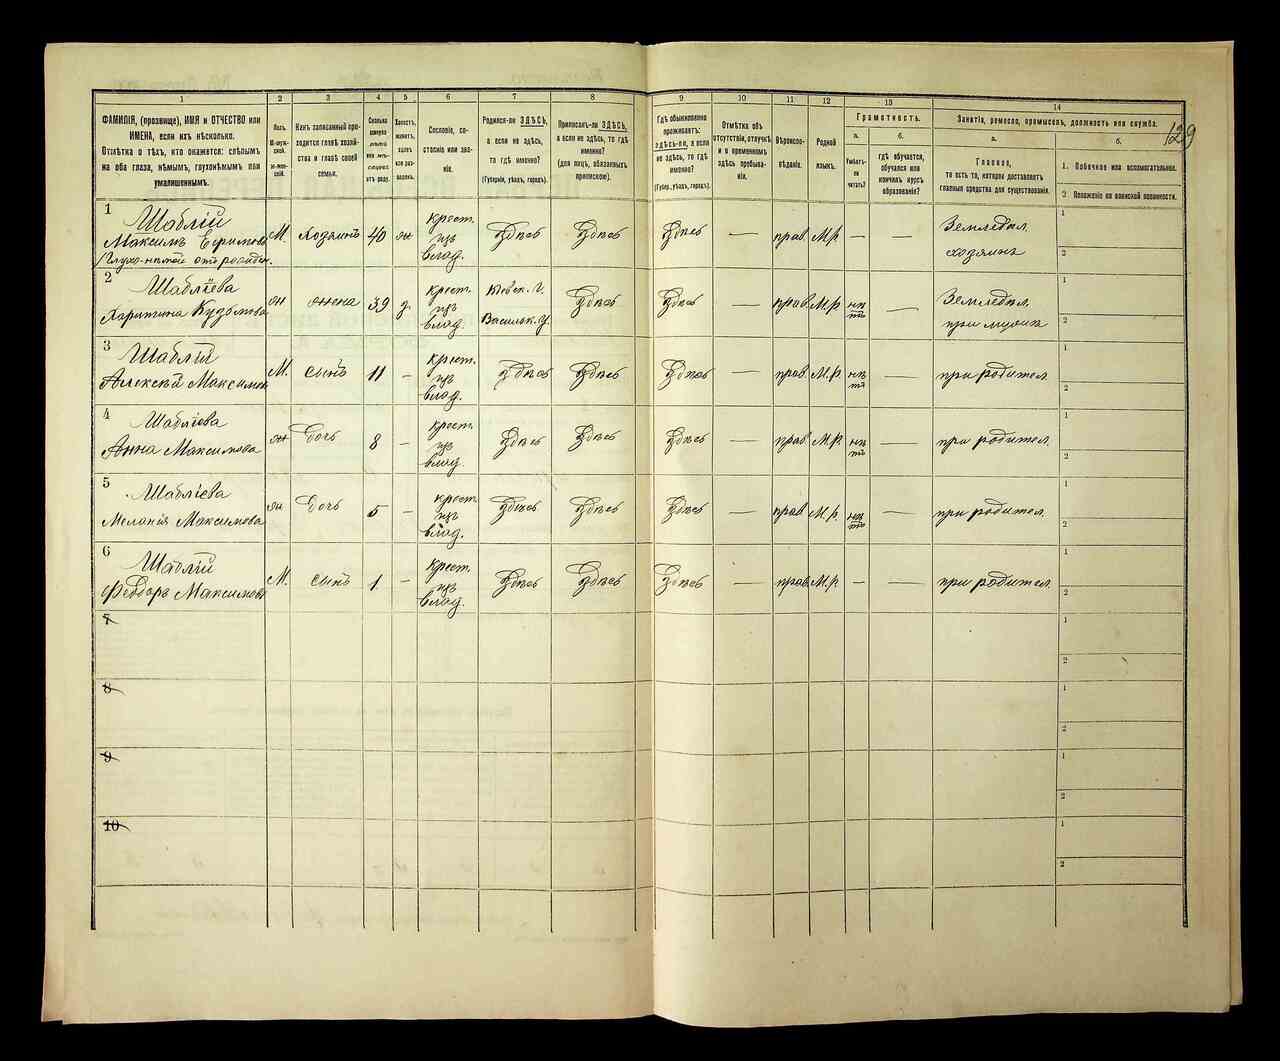 129
1
2
3
4
5
6
7
8
9
10
11
12
13
14
ФАМИЛІЯ, (прозвище), ИМЯ и ОТЧЕСТВО или
ИМЕНА, если ихъ нѣсколько.
Отмѣтка о тѣхъ, кто окажется: слѣпымъ
на оба глаза, нѣмымъ, глухонѣмымъ или
умалишеннымъ.
Полъ.
М-мужской.
Ж-женскій.
Какъ записанный приходится главѣ хозяйства и главѣ своей семьи.
Сколько минуло лѣтъ или мѣсяцевъ отъ роду.
Холостъ, женатъ, вдовъ или разведенъ.
Сословіе, состояніе или званіе.
Родился-ли ЗДѢСЬ,
а если не здѣсь,
то гдѣ именно?
(Губернія, уѣздъ, городъ).
Приписанъ-ли ЗДѢСЬ,
а если не здѣсь, то гдѣ
именно?
(для лицъ, обязанныхъ
припискою).
Гдѣ обыкновенно
проживаетъ:
ЗДѢСЬ-ли, а если
не здѣсь, то гдѣ
именно?
(Губер., уѣздъ, городъ).
Отмѣтка объ
отсутствіи, отлучкѣ
и о временномъ
здѣсь пребываніи.
Вѣроисповѣданіе.
Родной
языкъ.
Грамотность.
а.
Умѣетъ-ли
читать?
б.
гдѣ обучается,
обучался или
кончилъ курсъ
образованія?
Занятіе, ремесло, промыселъ, должность или служба.
а.
Главное,
то есть то, которое доставляетъ
главныя средства для существованія.
б.
1. Побочное или вспомогательное.
2 Положеніе по воинской повинности.
1 Шаблій
Максимъ Ефимовъ
Глухо-нѣмой отъ рожден.
М. Хозяинъ 40 ж Крест. изъ влад. Здѣсь Здѣсь Здѣсь — прав. М.р. — — Земледѣл. хозяинъ
1
2
2 Шабліева
Харитина Кузьмова
ж жена 39 з. Крест. изъ влад. Кіевск. г. Васильк. у. Здѣсь Здѣсь — прав. М.р. нѣтъ — Земледѣл. при мужѣ
1
2
3 Шаблій
Алексѣй Максимов
М. сынъ 11 — Крест. изъ влад. Здѣсь Здѣсь Здѣсь — прав. М.р. нѣтъ — при родител.
1
2
4 Шабліева
Анна Максимова
ж Дочь 8 — Крест. изъ влад. Здѣсь Здѣсь Здѣсь — прав. М.р. нѣтъ — при родител.
1
2
5 Шабліева
Меланія Максимова
ж Дочь 5 — крест. изъ влад. Здѣсь Здѣсь Здѣсь — прав. М.р. нѣтъ — при родител.
1
2
6 Шаблій
Феодоръ Максимовъ
М. сынъ 1 — Крест. изъ влад. Здѣсь Здѣсь Здѣсь — прав. М.р. — — при родител.
1
2
7
1
2
8
1
2
9
1
2
10
1
2